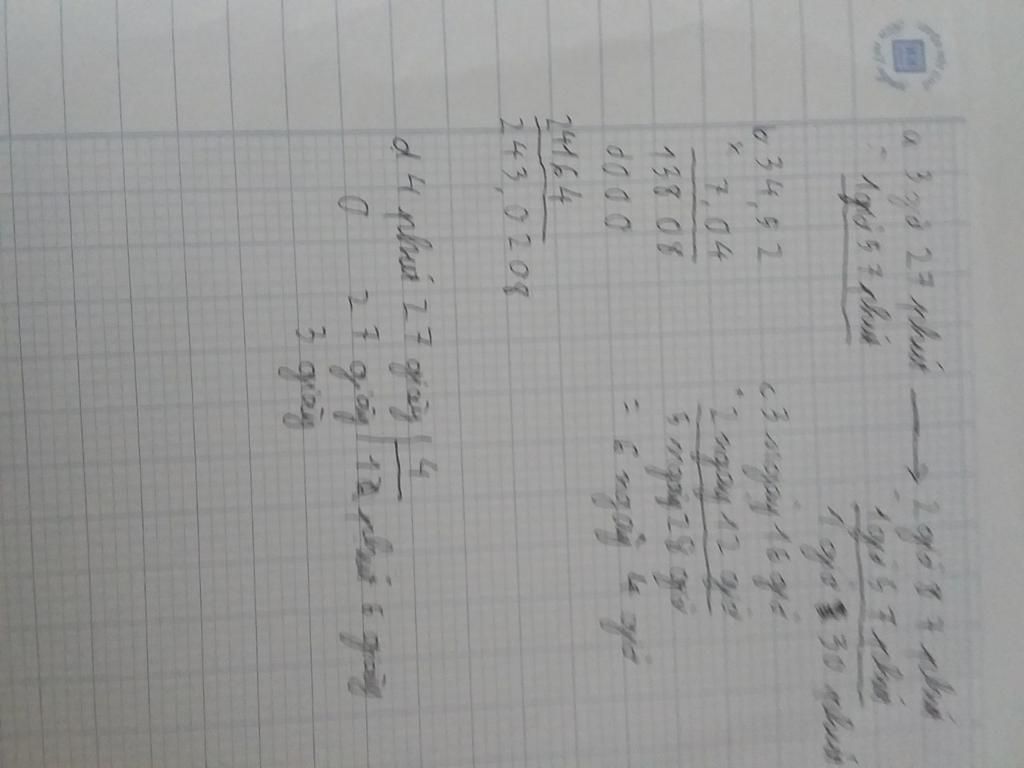 a 3 giờ 27 phút → 2 giờ 87 phút
- 1 giờ 57 phút - 1 giờ 57 phút
1 giờ 30 phút
b 34,52
x 7,04
13808
0000
24164
243,0208
c 3 ngày 16 giờ
+ 2 ngày 12 giờ
5 ngày 28 giờ
= 6 ngày 4 giờ
d 4 phút 27 giây 4
0 27 giây 1 phút 6 giây
3 giây